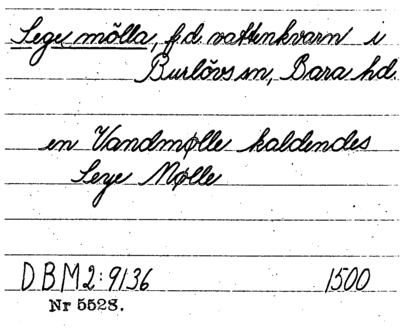 Lege mölla, f.d. vattenkvarn i
Burlövs sn, Bara hd.
en Vandmølle kaldendes
Leye Mølle
DBM2:9136 1500
Nr 5528.